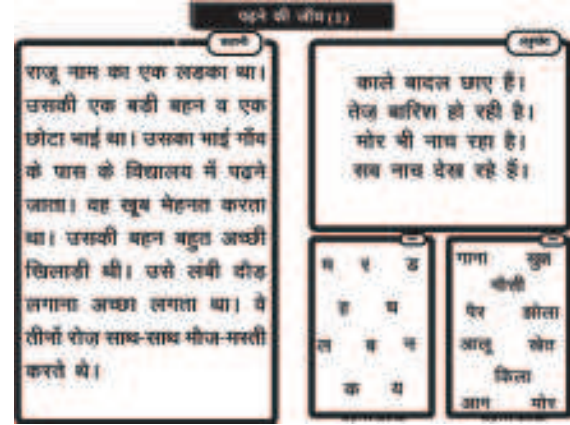 पढ़ने की जाँच (1)
कहानी
राजू नाम का एक लडका था।
उसकी एक बडी बहन व एक
छोटा भाई था। उसका भाई गाँव
के पास के विद्यालय में पढ़ने
जाता। वह खूब मेहनत करता
था। उसकी बहन बहुत अच्छी
खिलाडी थी। उसे लंबी दौड़
लगाना अच्छा लगता था। वे
तीनों रोज़ साथ-साथ मौज-मस्ती
करते थे।
अनुच्छेद
काले बादल छाए हैं।
तेज़ बारिश हो रही है।
मोर भी नाच रहा है।
सब नाच देख रहे हैं।
ड
ह
ल ब न
क य
गाना
मौसी
पैर झोला
आलू खेत
किला
आग मोर